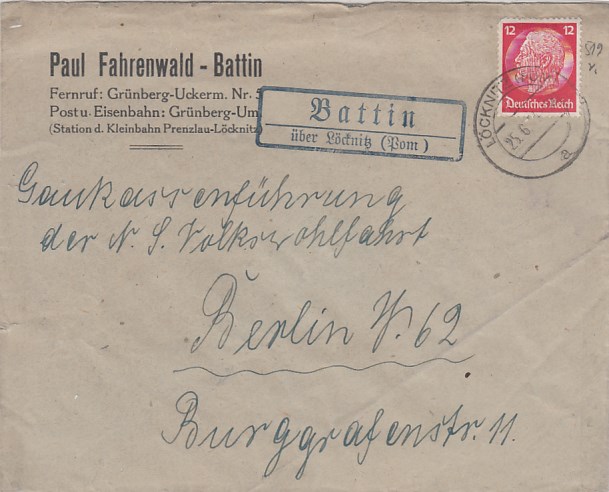 Paul Fahrenwald - Battin
Fernruf: Grünberg-Uckerm. Nr.
Post u. Eisenbahn: Grünberg-Um
(Station d. Kleinbahn Prenzlau-Löcknitz
Battin
über Löcknitz (Pom)
12 12
Deutsches Reich
LÖCKNITZ
25.6.
a
Gaukassenführung
der N. S. Volkswohlfahrt
Berlin W. 62
Burggrafenstr. 11.